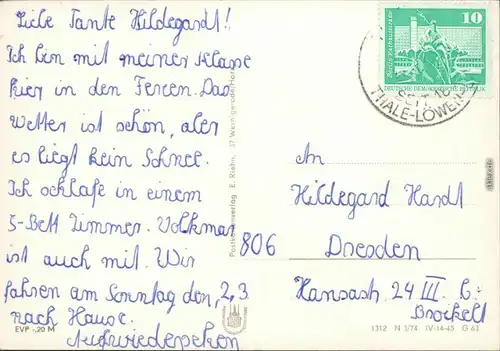 Liebe Tante Hildegardt!
Ich bin mit meiner Klasse
hier in den Ferien. Das
Wetter ist schön, aber
es liegt kein Schnee.
Ich schlafe in einem
5-Bett Zimmer. Volkmar
ist auch mit. Wir
fahren am Sonntag den, 2.3.
nach Hause.
Aufwiedersehen
EVP -,20 M
Postkartenverlag E. Riehn, 37 Wernigerode/Harz
10
Berlin
DEUTSCHE DEMOKRATISCHE REPUBLIK
SEIT
THALE-LÖWEN
An
Hildegard Hardt
806 Dresden
24 III b.
1312 N 3/74 IV-14-45 G 63